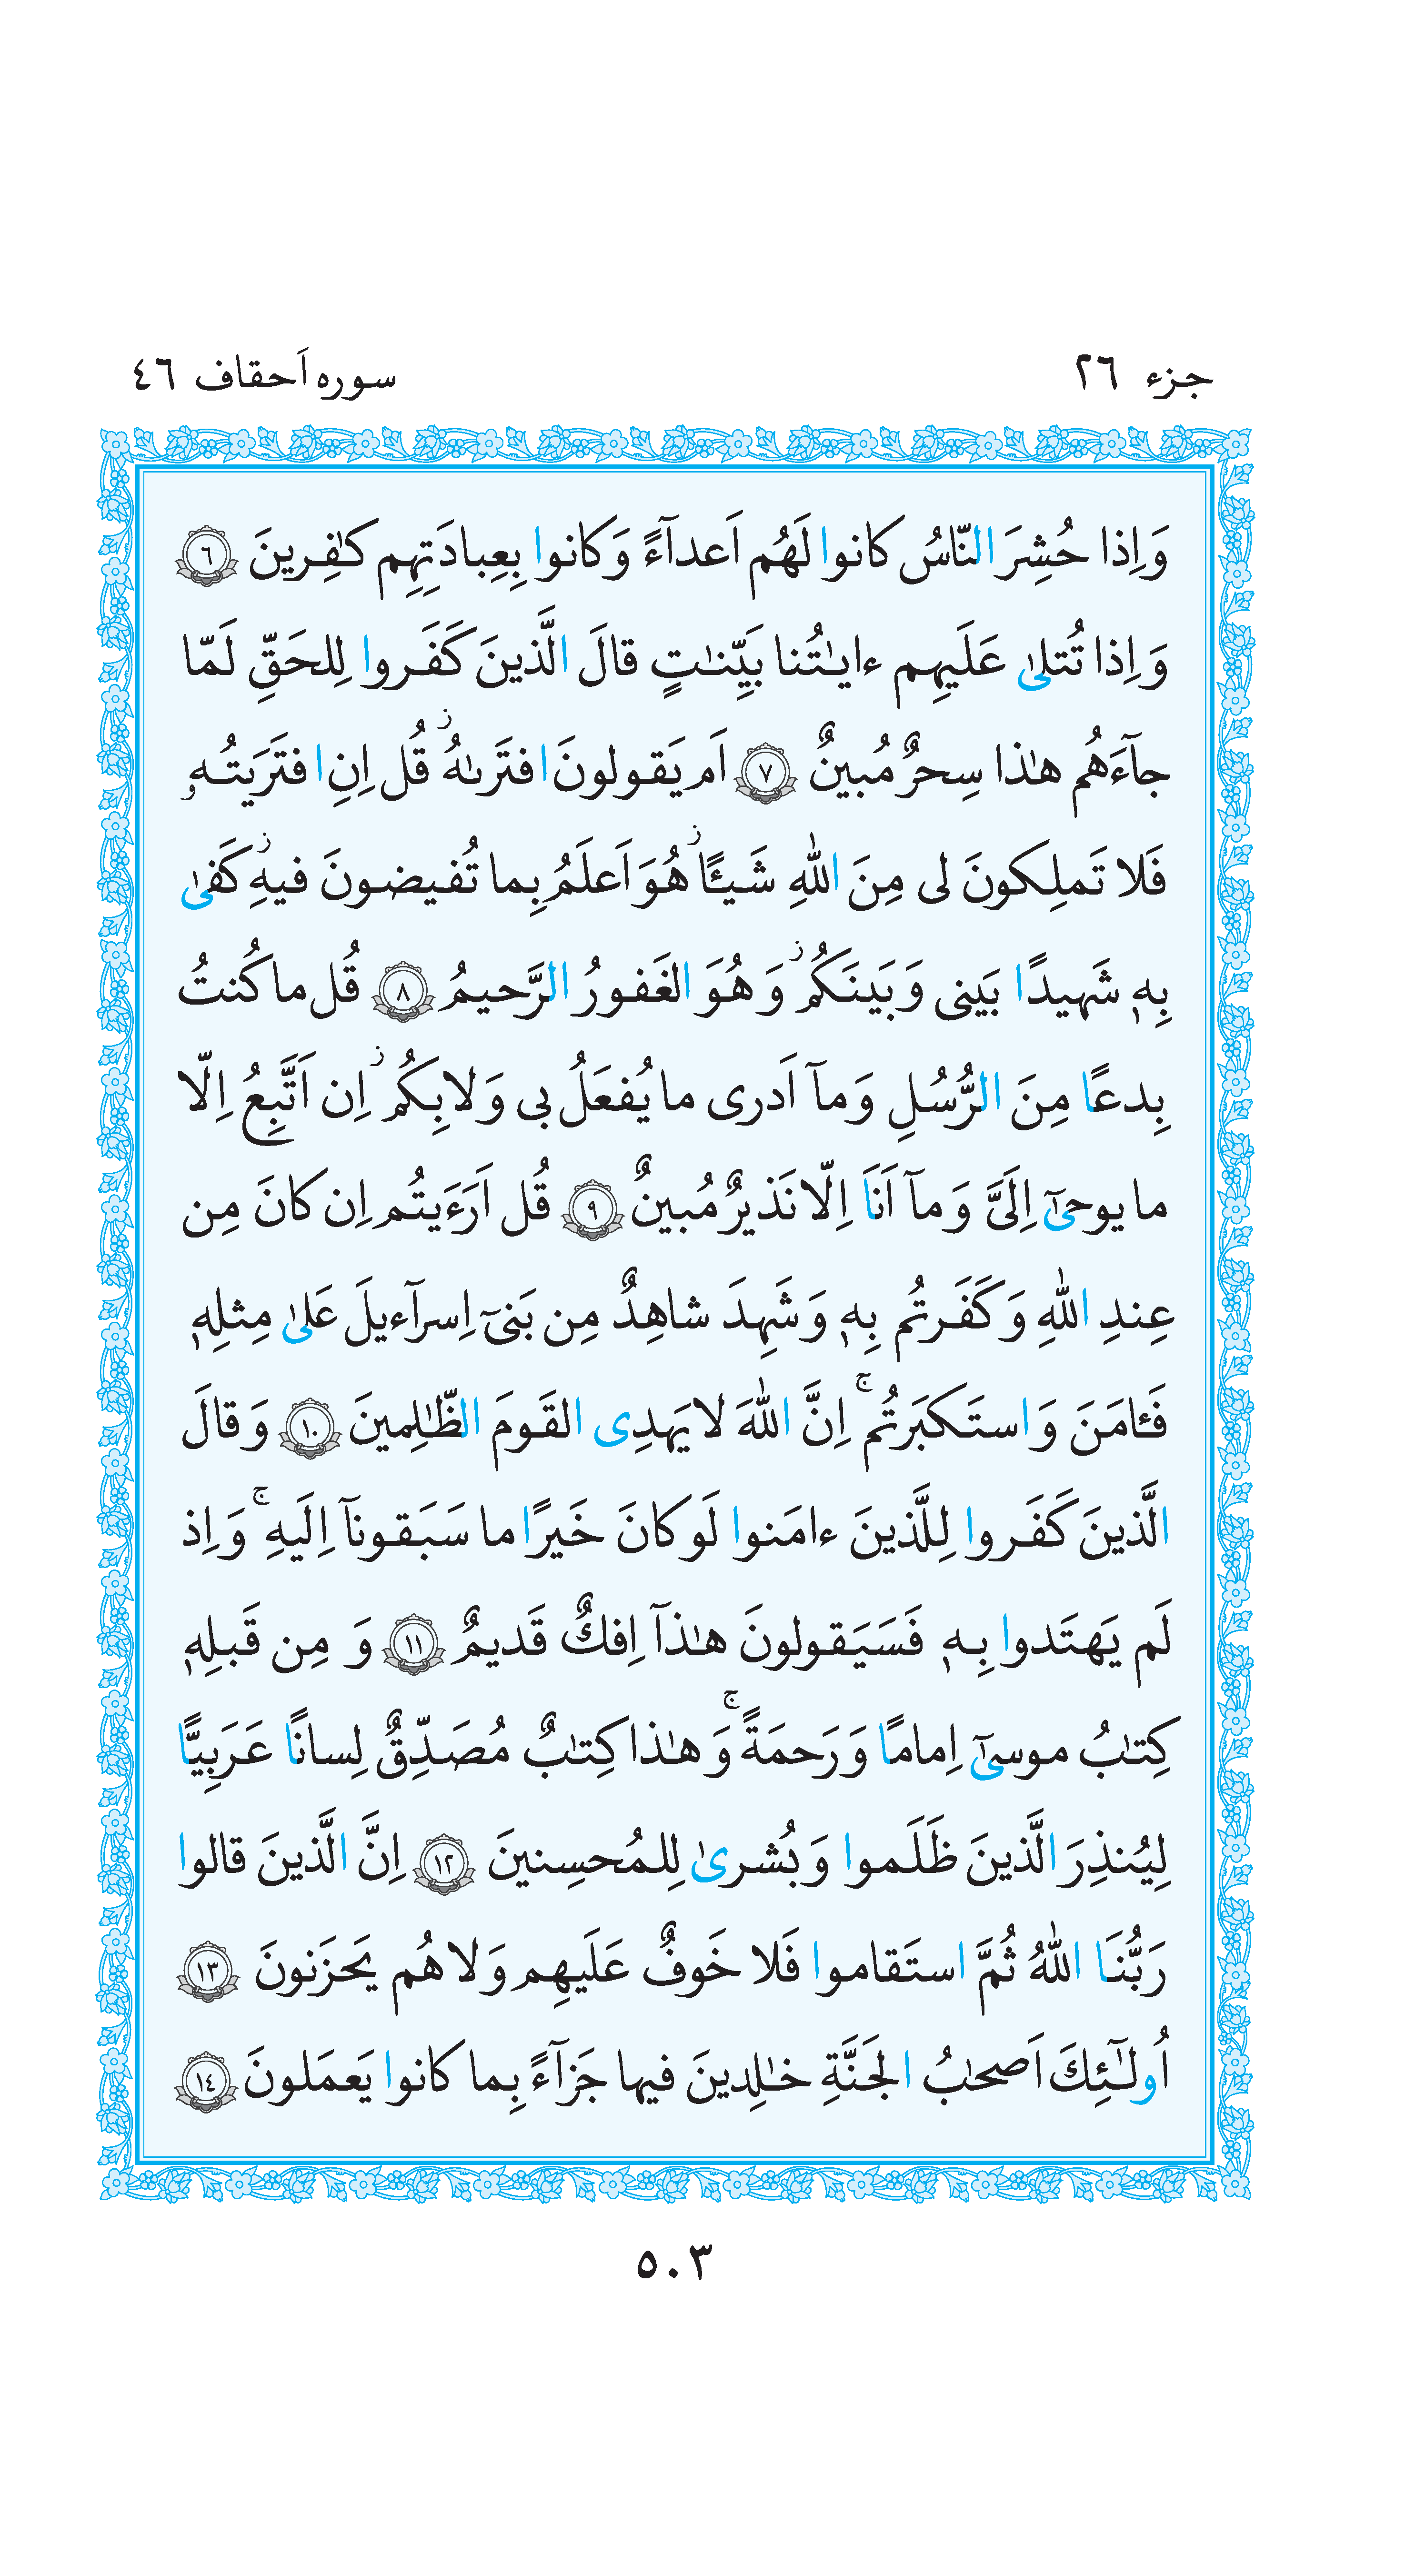 جزء ٢٦
سوره اَحقاف ٤٦
وَ اِذا حُشِرَ النّاسُ كانوا لَهُم اَعدآءً وَ كانوا بِعِبادَتِهِم كٰفِرينَ ٦
وَ اِذا تُتلىٰ عَلَيهِم ءايٰتُنا بَيِّنٰتٍ قالَ الَّذينَ كَفَروا لِلحَقِّ لَمّا
جآءَهُم هٰذا سِحرٌ مُبينٌ ٧ اَم يَقولونَ افتَرَىٰهُ ۖ قُل اِنِ افتَرَيتُهو
فَلا تَملِكونَ لى مِنَ اللّٰهِ شَيـًٔا ۖ هُوَ اَعلَمُ بِما تُفيضونَ فيهِ ۖ كَفىٰ
بِهٖ شَهيدًا بَينى وَ بَينَكُم ۖ وَ هُوَ الغَفورُ الرَّحيمُ ٨ قُل ما كُنتُ
بِدعًا مِنَ الرُّسُلِ وَ مآ اَدرى ما يُفعَلُ بى وَ لا بِكُم ۖ اِن اَتَّبِعُ اِلّا
ما يوحىٰٓ اِلَىَّ وَ مآ اَنَا اِلّا نَذيرٌ مُبينٌ ٩ قُل اَرَءَيتُم اِن كانَ مِن
عِندِ اللّٰهِ وَ كَفَرتُم بِهٖ وَ شَهِدَ شاهِدٌ مِن بَنىٓ اِسرآءيلَ عَلىٰ مِثلِهٖ
فَـٔامَنَ وَ استَكبَرتُم ۚ اِنَّ اللّٰهَ لا يَهدِى القَومَ الظّٰلِمينَ ١٠ وَ قالَ
الَّذينَ كَفَروا لِلَّذينَ ءامَنوا لَو كانَ خَيرًا ما سَبَقونآ اِلَيهِ ۚ وَ اِذ
لَم يَهتَدوا بِهٖ فَسَيَقولونَ هٰذآ اِفكٌ قَديمٌ ١١ وَ مِن قَبلِهٖ
كِتٰبُ موسىٰٓ اِمامًا وَ رَحمَةً ۚ وَ هٰذا كِتٰبٌ مُصَدِّقٌ لِسانًا عَرَبِيًّا
لِيُنذِرَ الَّذينَ ظَلَموا وَ بُشرىٰ لِلمُحسِنينَ ١٢ اِنَّ الَّذينَ قالوا
رَبُّنَا اللّٰهُ ثُمَّ استَقاموا فَلا خَوفٌ عَلَيهِم وَ لا هُم يَحزَنونَ ١٣
اُولٰٓئِكَ اَصحٰبُ الجَنَّةِ خٰلِدينَ فيها جَزآءً بِما كانوا يَعمَلونَ ١٤
٥٠٣